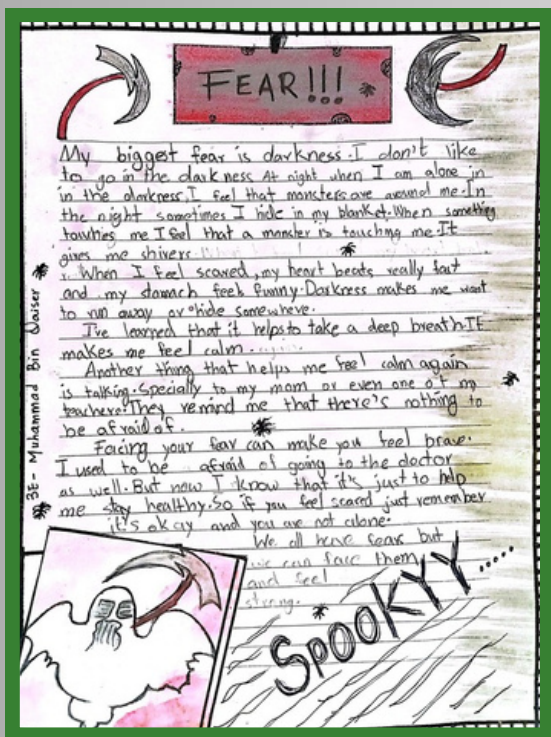 FEAR!!!
My biggest fear is darkness. I don't like
to go in the darkness. At night when I am alone in
in the darkness, I feel that monsters are around me. In
the night sometimes I hide in my blanket. When something
touches me I feel that a monster is touching me. It
gives me shivers.
When I feel scared, my heart beats really fast
and my stomach feels funny. Darkness makes me want
to run away or hide somewhere.
I've learned that it helps to take a deep breath. It
makes me feel calm.
Another thing that helps me feel calm again
is talking. Specially to my mom or even one of my
teachers. They remind me that there's nothing to
be afraid of.
Facing your fear can make you feel brave.
I used to be afraid of going to the doctor
as well. But now I know that it's just to help
me stay healthy. So if you feel scared just remember
it's okay and you are not alone.
We all have fears but
we can face them
and feel
strong.
SpooKYY.....
3E- Muhammad Bin Qaiser